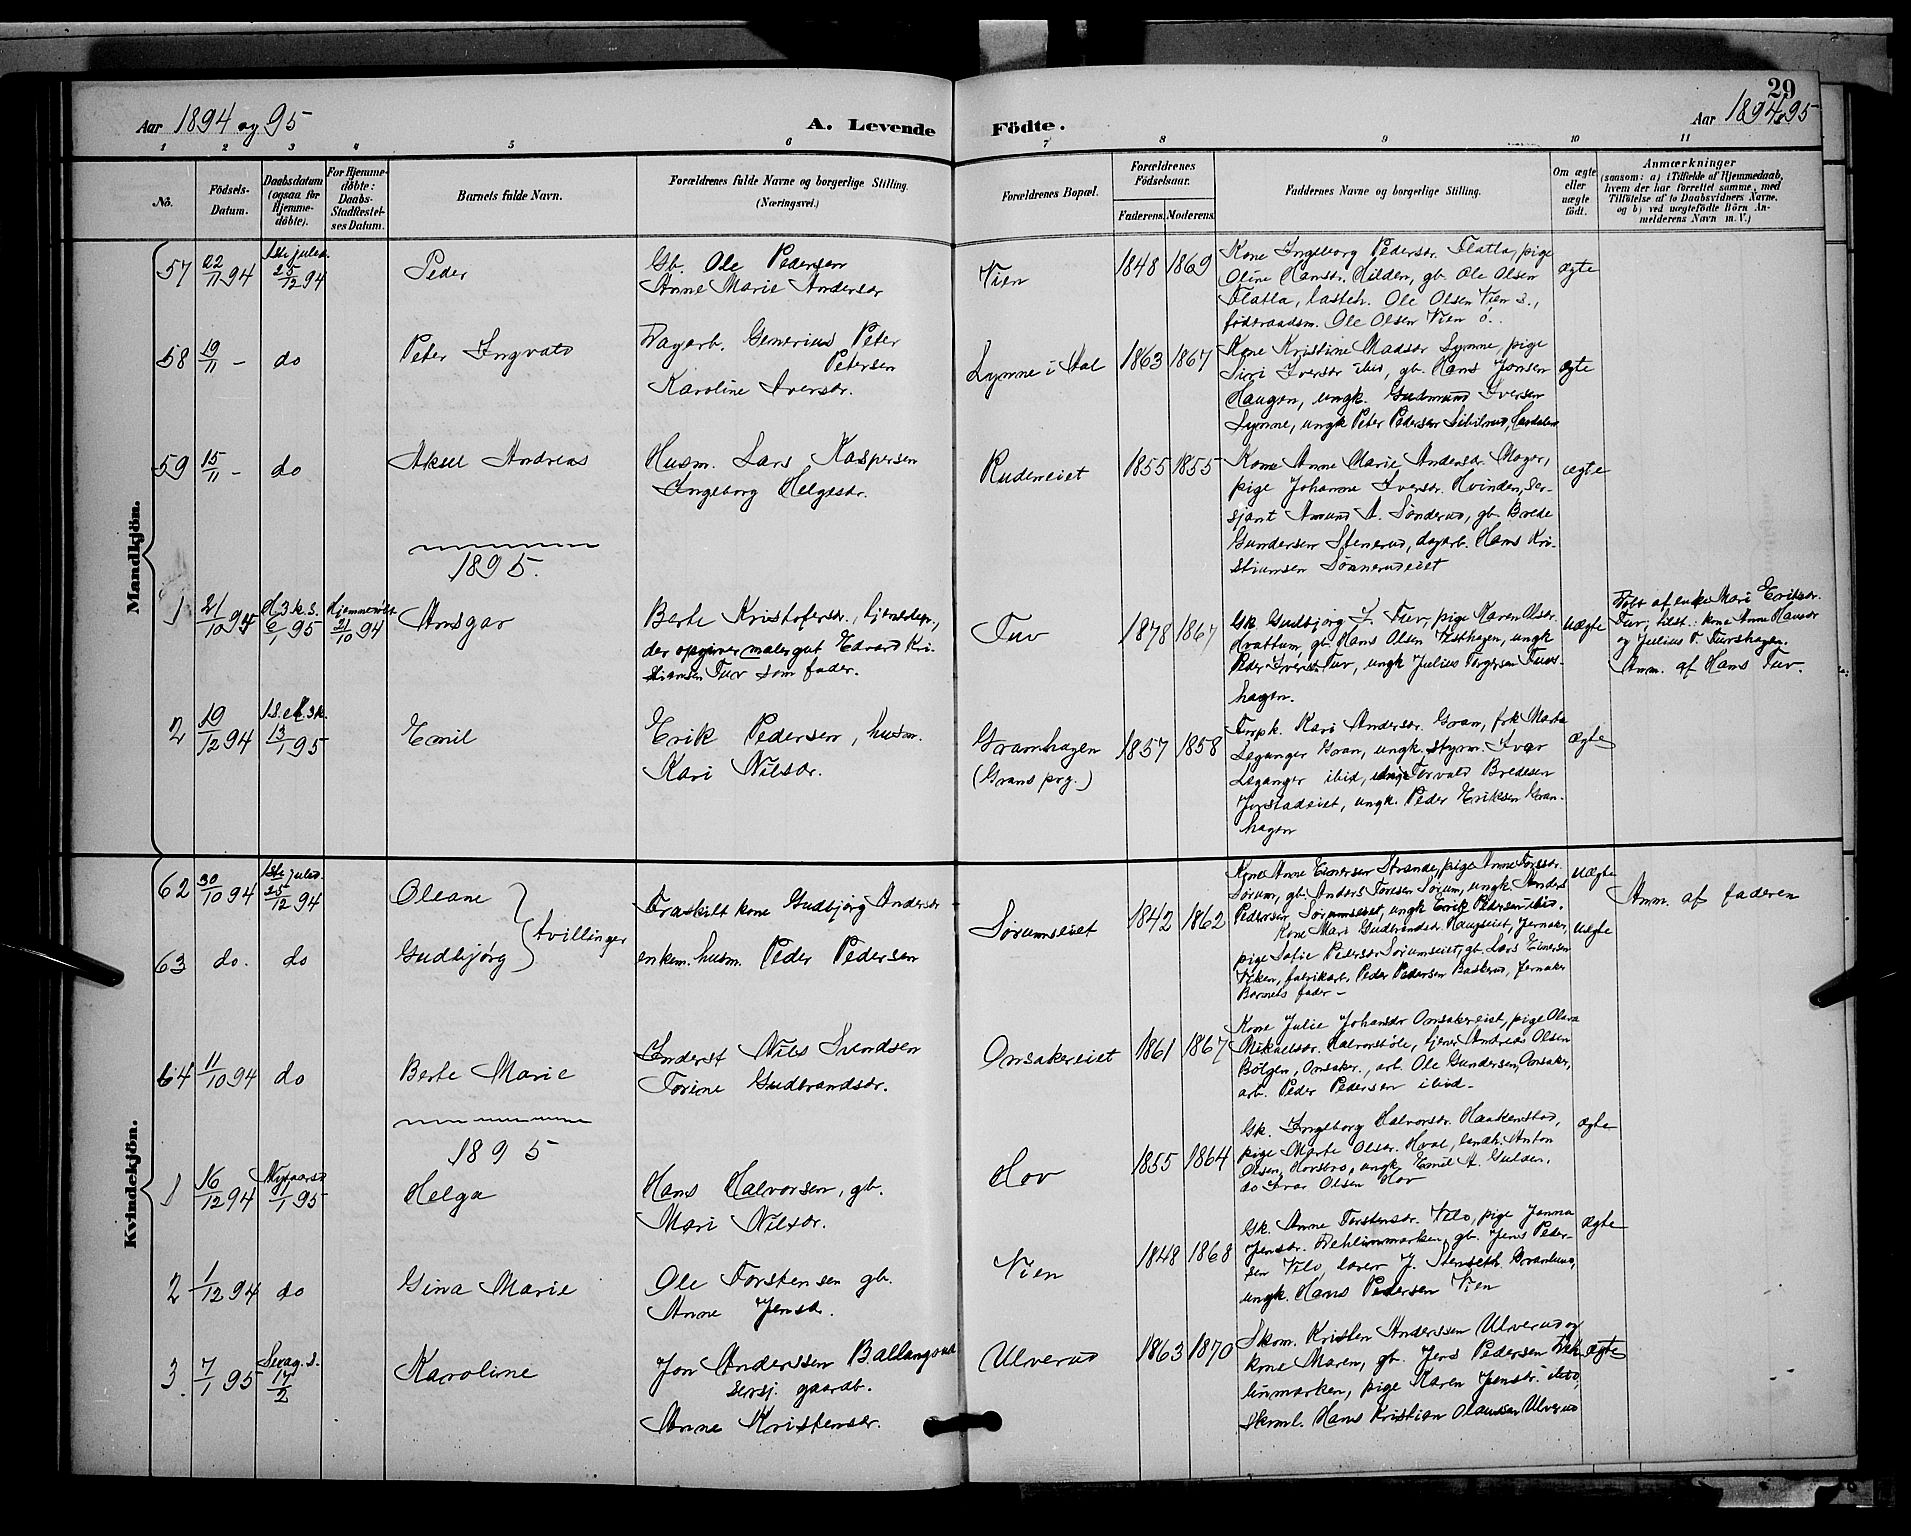 29
Aar 1894 og 95
A. Levende Födte.
Aar 1894 95
1 2 3 4 5 6 7 8 9 10 11
No.
Födsels-Datum.
Daabsdatum (ogsaa for Hjemme-döbte).
For Hjemme-döbte: Daabs-Stadfæstel-ses Datum.
Barnets fulde Navn.
Forældrenes fulde Navne og borgerlige Stilling.
(Næringsvei.)
Forældrenes Bopæl.
Forældrenes Födselsaar.
Faderens. Moderens.
Faddernes Navne og borgerlige Stilling.
Om ægte eller uægte födt.
Anmærkninger
(saasom: a) i Tilfælde af Hjemmedaab, hvem der har forrettet samme, med Tilföielse af to Daabsvidners Navne. og b) ved uægtefödte Börn An-melderens Navn m. V.)
Mandkjön.
57 22/11 94 1ste juled. 25/12 94 Peder
Gb. Ole Pedersen
Anne Marie Andersdr
Vien 1848 1869
Kone Ingeborg Pedersdr. Flatla, pige
Oline Hansdr. Hilden, gb. Ole Olsen
Flatla, Ole Olsen Vien s.,
föderaadsm. Ole Olsen Vien ö.
ægte
58 19/11 - do Peter Ingvald
Dagarb. Generius Peter
Petersen
Karoline Iversdr.
Lynne i Aal 1863 1867
Kone Kristine Madsdr Lynne, pige
Siri Iversdr ibid, gb. Hans Jonsen
Haugen, ungk. Gudmund Iversen
Lynne, ungk Peter Pedersen
ægte
59 15/11 - do Aksel Andreas
Husm. Lars Kaspersen
Ingeborg Helgesdr.
Rudeneiet 1855 1855
Kone Anne Marie Andersdr. Moger,
pige Johanne Iversdr. Hvinden, Ser-
sjant Amund A. Sönderud, gb. Brede
Gundersen Stenerud, dagarb. Hans Kri-
stiansen Sönneru​deiet
ægte
1895.
1 21/10 94 H 3 k. s. 6/1 95 Hjemmedöbt 21/10 94 Ansgar
Berte Kristofersdr., tjenestep.,
der opgiver malergut Edvard Kri-
stiansen Tuv som fader.
Tuv 1878 1867
Gk. Gudbjörg J. Tuv, pige Karen Olsdr.
Hvattum, gb. Hans Olsen Vesthagen, ungk
Peder Iversen Tuv, ungk Julius Torgersen Tuvs-
hagen.
uægte
Döbt af enke Mari Eriksdr.
Tuv; tilst.: kone Anne Hansdr
og Julius T. Tuvshagen.
Anm. af Hans Tuv.
2 19/12 94 1 s. e. H 3 k. 13/1 95 Emil
Erik Pedersen, husm.
Kari Nilsdr.
Granhagen
(Grans prg.)
1857 1858
Kari Andersdr. Gran, frk Marta
Leganger Gran, ungk. styrm. Ivar
Leganger ibid, Torvald Bredesen
Jorstadeiet, ungk. Peder Eriksen Gran-
hagen
ægte
Kvindekjön.
62 30/10 94 1ste juled. 25/12 94 Oleane
63 do. do Gudbjörg
tvillinger
Fraskilt kone Gudbjörg Andersdr
enkem. husm. Peder Pedersen
Sörumseiet 1842 1862
Kone Anne Einersen Strande, pige Anne Toresdr.
Sörum, gb. Anders Toresen Sörum, ungk Anders
Pedersen Sörumseiet, ungk Erik Pedersen ibid.
Kone Mari Gudbrandsdr. Haugseiet, Jevnaker,
pige Sofie Pedersdr Sörumseiet, gb. Lars Einersen
Viken, fabrikarb. Peder Pedersen Baskerud, Jevnaker
Barnets fader -
uægte
uægte
Anm. af faderen
64 11/10 94 do Berte Marie
Inderst Nils Svendsen
Torine Gudbrandsdr.
Onsakereiet 1861 1867
Kone Julie Johansdr Onsakereiet, pige Olava
Mikaelsdr. Halvorsböle, tjener Andreas Olsen
Bölgen, Onsaker, arb. Ole Gundersen, Onsaker,
arb. Peder Pedersen ibid.
ægte
1895
1 16/12 94 Nytaarsd 1/1 95 Helga
Hans Halvorsen, gb.
Mari Nilsdr.
Hov 1855 1864
Gk. Ingeborg Halvorsdr. Haakenstad,
pige Marte Olsdr. Hval, landh. Anton
Olsen, Hovsbro, ungk Emil A. Gulden,
do Ivar Olsen Hov
ægte
2 1/12 94 do Gina Marie
Ole Torstensen gb.
Anne Jensd.
Vien 1848 1868
Gk. Anne Torstensdr. Velo, pige Janna
Jensdr. Dehlinmarken, gb. Jens Peder-
sen Velo, lærer J. Stenseth Granlund,
ungk. Hans Pedersen Vien
3. 7/1 95 Sexag. s. 17/2 Karoline
Jon Anderssen Ballangrud
sersj. gaardb.
Anne Kristensdr.
Ulverud 1863 1870
Skom. Kristen Anderssen Ulverud og
kone Maren, gb. Jens Pedersen Deh-
linmarken, pige Karen Jensdr. ibid,
Skoml. Hans Kristian Olaussen Ulverud
ægte